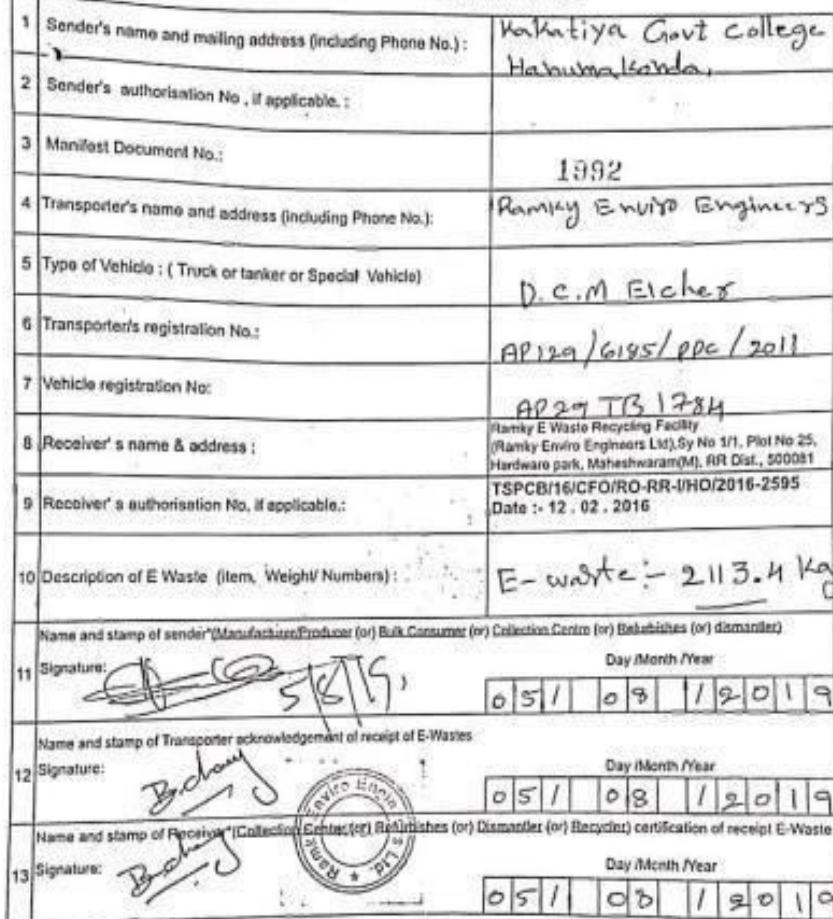 1 Sender's name and mailing address (including Phone No.) : Kakatiya Govt College
Hanumakonda,
2 Sender's authorisation No , if applicable. :
3 Manifest Document No.: 1992
4 Transporter's name and address (including Phone No.): Ramky Enviro Engineers
5 Type of Vehicle : ( Truck or tanker or Special Vehicle) D.C.M Eicher
6 Transporter/s registration No.: AP129/6185/PPC/2011
7 Vehicle registration No: AP29 TB 1784
8 Receiver' s name & address : Ramky E Waste Recycling Facility
(Ramky Enviro Engineers Ltd),Sy No 1/1, Plot No 25,
Hardware park, Maheshwaram(M), RR Dist., 500081
9 Receiver' s authorisation No, if applicable.: TSPCB/16/CFO/RO-RR-I/HO/2016-2595
Date :- 12 . 02 . 2016
10 Description of E Waste (item, Weight/ Numbers) : E-waste:- 2113.4 Kg
Name and stamp of sender*(Manufacturer/Producer (or) Bulk Consumer (or) Collection Centre (or) Refurbishes (or) dismantler)
11 Signature: 5/8/19, Day /Month /Year
05/ 08 /2019
Name and stamp of Transporter acknowledgement of receipt of E-Wastes
12 Signature: Day /Month /Year
05/ 08 /2019
Name and stamp of Receiver*(Collection Center (or) Refurbishes (or) Dismantler (or) Recycler) certification of receipt E-Waste
13 Signature: Day /Month /Year
05/ 08 /2019